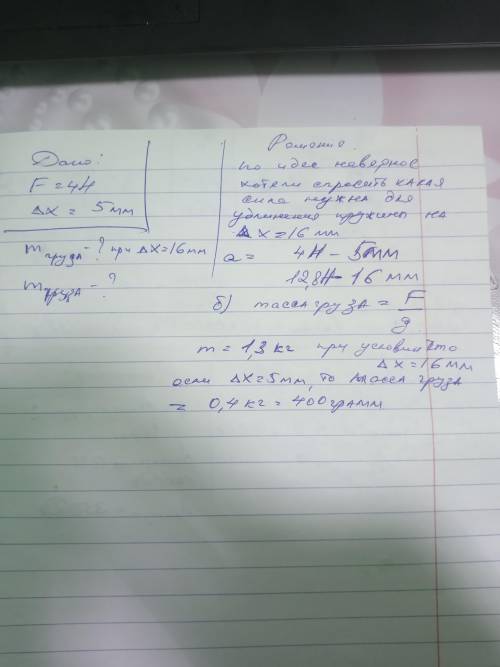 Дано:
F = 4Н
Δx = 5мм
m груза - ? при Δx = 16мм
m груза - ?
Решение.
по идее наверное
хотели спросить какая
сила нужна для
удлинения пружины на
Δx = 16 мм
а = 4Н - 5мм
12,8Н - 16 мм
б) масса груза = F/g
m = 1,3 кг при условии что
Δx = 16 мм
если Δx = 5мм, то масса груза
= 0,4 кг = 400 грамм